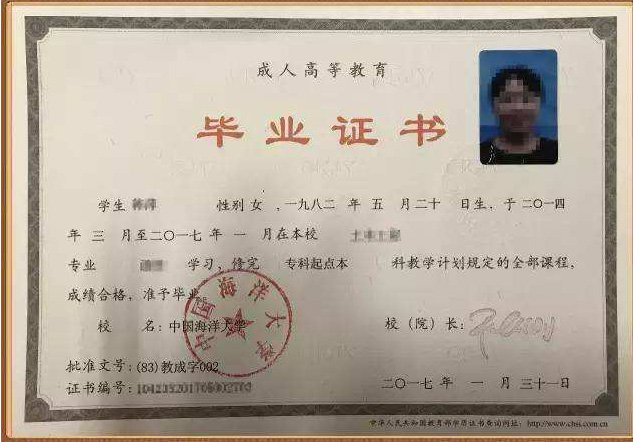 成人高等教育
毕业证书
学生 性别 女 ,一九八二 年 五 月二十 日生,于二〇一四
年 三 月至二〇一七年 一 月在本校
专业 学习,修完 专科起点本 科教学计划规定的全部课程,
成绩合格,准予毕业
校 名:中国海洋大学 校(院)长:
批准文号:(83)教成字002
证书编号:
二〇一七年 一 月 三十一日
中国海洋大学
中华人民共和国教育部学历证书查询网址:http://www.chsi.com.cn